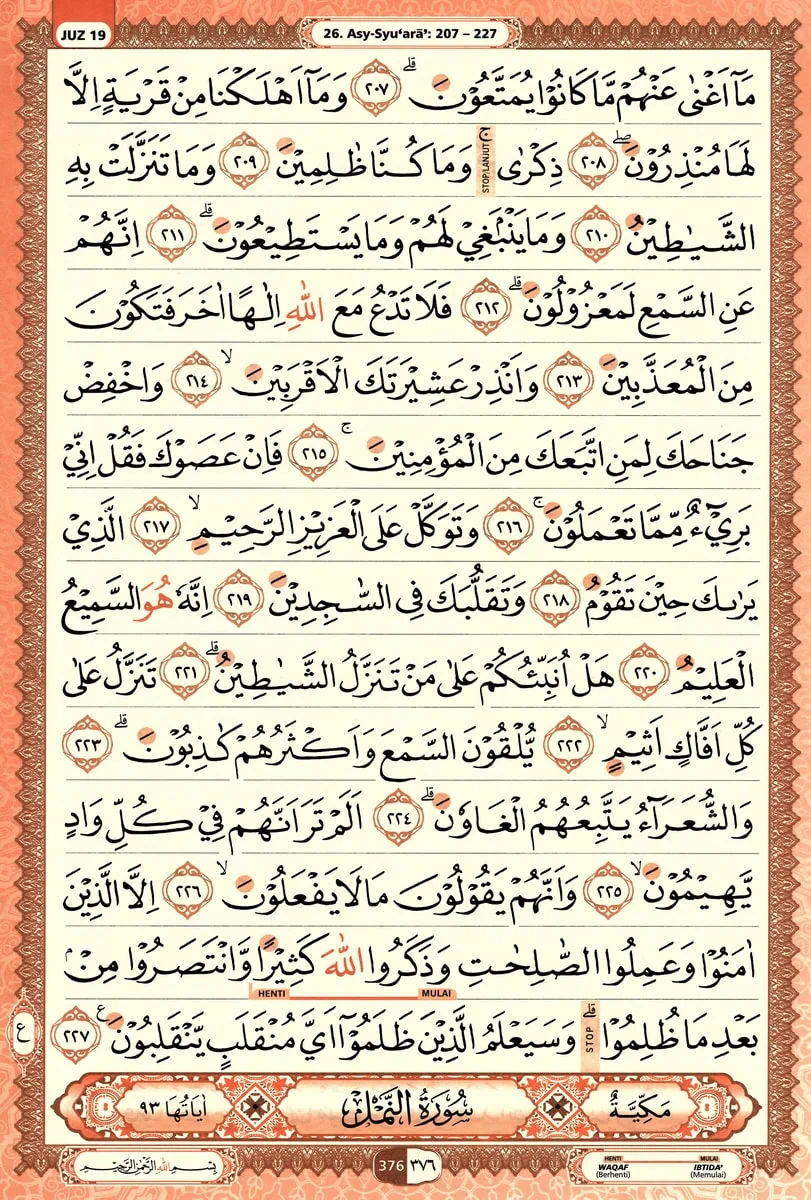 JUZ 19
26. Asy-Syu‘arā’: 207 – 227
مَآ اَغْنٰى عَنْهُمْ مَّا كَانُوْا يُمَتَّعُوْنَ ۗ ٢٠٧ وَمَآ اَهْلَكْنَا مِنْ قَرْيَةٍ اِلَّا
لَهَا مُنْذِرُوْنَ ۖ ٢٠٨ ذِكْرٰى ۚ STOP/LANJUT وَمَا كُنَّا ظٰلِمِيْنَ ٢٠٩ وَمَا تَنَزَّلَتْ بِهِ
الشَّيٰطِيْنُ ٢١٠ وَمَا يَنْۢبَغِيْ لَهُمْ وَمَا يَسْتَطِيْعُوْنَ ۗ ٢١١ اِنَّهُمْ
عَنِ السَّمْعِ لَمَعْزُوْلُوْنَ ۗ ٢١٢ فَلَا تَدْعُ مَعَ اللّٰهِ اِلٰهًا اٰخَرَ فَتَكُوْنَ
مِنَ الْمُعَذَّبِيْنَ ٢١٣ وَاَنْذِرْ عَشِيْرَتَكَ الْاَقْرَبِيْنَ ۙ ٢١٤ وَاخْفِضْ
جَنَاحَكَ لِمَنِ اتَّبَعَكَ مِنَ الْمُؤْمِنِيْنَ ۚ ٢١٥ فَاِنْ عَصَوْكَ فَقُلْ اِنِّيْ
بَرِيْۤءٌ مِّمَّا تَعْمَلُوْنَ ۚ ٢١٦ وَتَوَكَّلْ عَلَى الْعَزِيْزِ الرَّحِيْمِ ۙ ٢١٧ الَّذِيْ
يَرٰىكَ حِيْنَ تَقُوْمُ ٢١٨ وَتَقَلُّبَكَ فِى السّٰجِدِيْنَ ٢١٩ اِنَّهٗ هُوَ السَّمِيْعُ
الْعَلِيْمُ ٢٢٠ هَلْ اُنَبِّئُكُمْ عَلٰى مَنْ تَنَزَّلُ الشَّيٰطِيْنُ ۗ ٢٢١ تَنَزَّلُ عَلٰى
كُلِّ اَفَّاكٍ اَثِيْمٍ ۙ ٢٢٢ يُّلْقُوْنَ السَّمْعَ وَاَكْثَرُهُمْ كٰذِبُوْنَ ۗ ٢٢٣
وَالشُّعَرَاۤءُ يَتَّبِعُهُمُ الْغَاوٗنَ ۗ ٢٢٤ اَلَمْ تَرَ اَنَّهُمْ فِيْ كُلِّ وَادٍ
يَّهِيْمُوْنَ ۙ ٢٢٥ وَاَنَّهُمْ يَقُوْلُوْنَ مَا لَا يَفْعَلُوْنَ ۙ ٢٢٦ اِلَّا الَّذِيْنَ
اٰمَنُوْا وَعَمِلُوا الصّٰلِحٰتِ وَذَكَرُوا اللّٰهَ كَثِيْرًا وَّانْتَصَرُوْا مِنْۢ
HENTI MULAI
بَعْدِ مَا ظُلِمُوْا ۗ STOP وَسَيَعْلَمُ الَّذِيْنَ ظَلَمُوْٓا اَيَّ مُنْقَلَبٍ يَّنْقَلِبُوْنَ ࣖ ٢٢٧
ع
مَكِّيَّةٌ سُوْرَةُ النَّمْلِ اٰيَاتُهَا ٩٣
بِسْمِ اللّٰهِ الرَّحْمٰنِ الرَّحِيْمِ
376 ٣٧٦
HENTI WAQAF (Berhenti)
MULAI IBTIDA’ (Memulai)